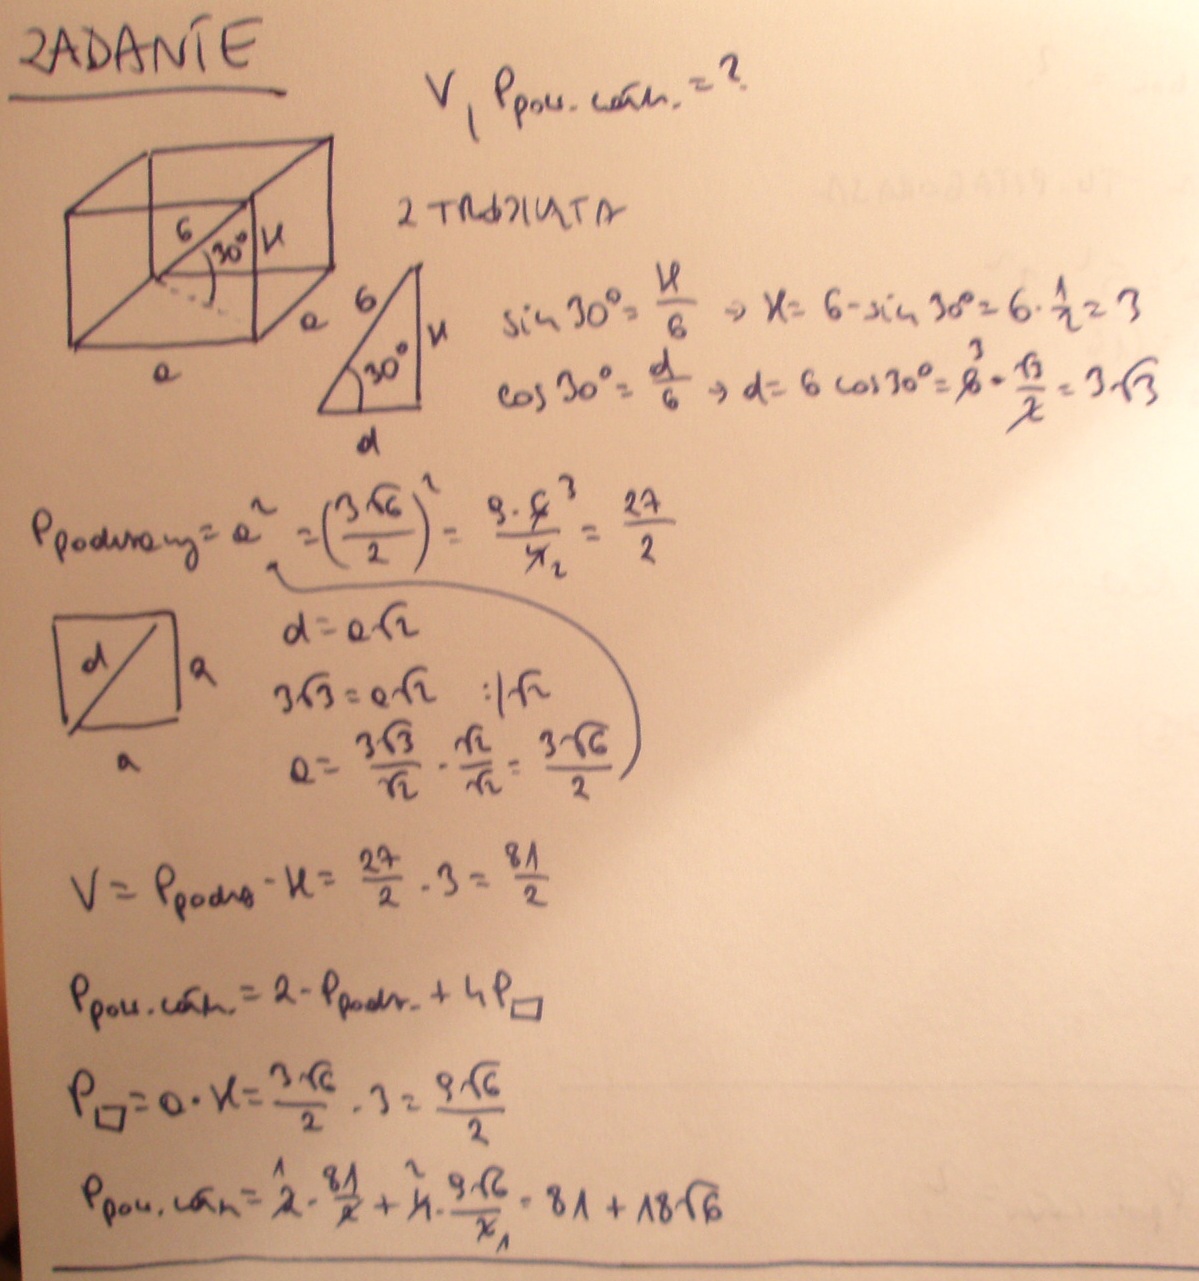 ZADANIE
V, Ppow. całk. = ?
6 30° H
a
a
Z TRÓJKĄTA
6 30° H
d
sin 30° = H/6 → H = 6 · sin 30° = 6 · 1/2 = 3
cos 30° = d/6 → d = 6 cos 30° = 6 3 · √3/2 = 3√3
Ppodstawy = a² = (3√6/2)² = 9·6 3/4 2 = 27/2
d a
a
d = a√2
3√3 = a√2 :|√2
a = 3√3/√2 · √2/√2 = 3√6/2
V = Ppodst · H = 27/2 · 3 = 81/2
Ppow. całk. = 2 · Ppodst. + 4P▭
P▭ = a · H = 3√6/2 · 3 = 9√6/2
Ppow. całk = 2 1 · 81/2 + 4 2 · 9√6/2 1 = 81 + 18√6